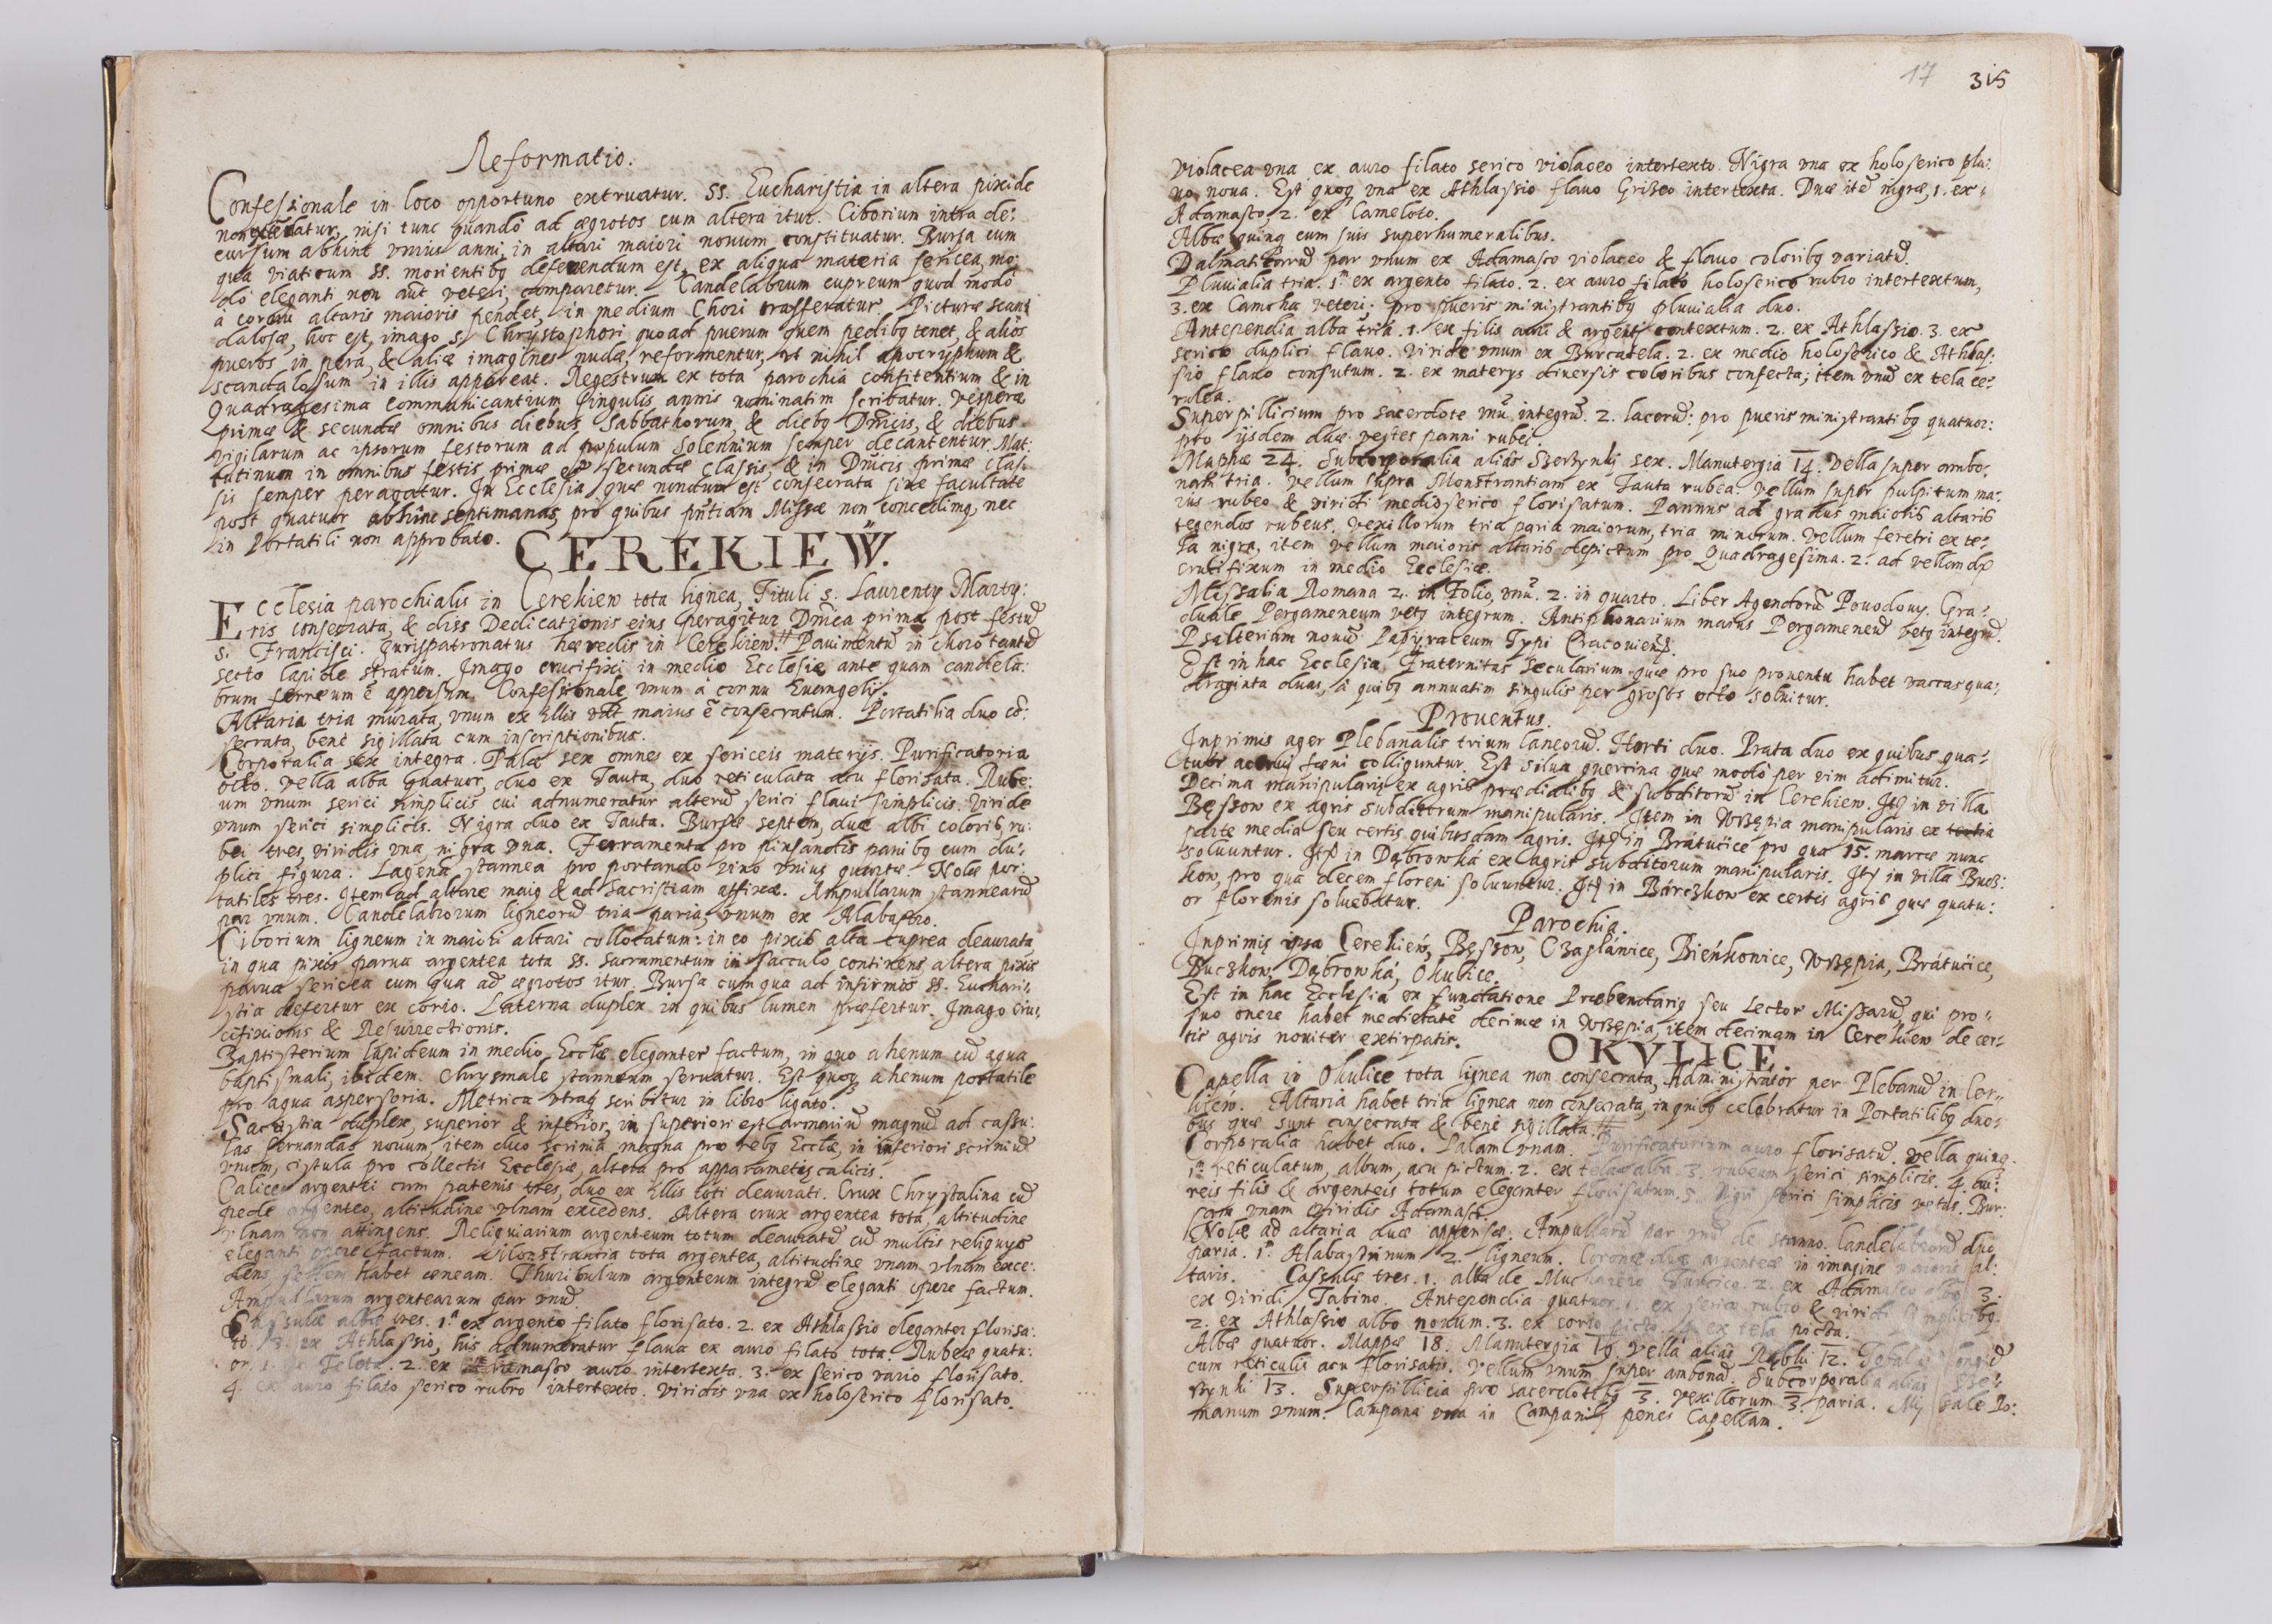 Reformatio.
Confessionale in loco opportuno extruatur. SS. Eucharistia in altera pixide
non , nisi tunc quando ad ægrotos cum altera itur. Ciborium intra de:
cursum abhinc vnius anni, in altari maiori nouum constituatur. Bursa cum
qua viaticum SS. morientibq deferendum est, ex aliqua materia sericea, mo:
do eleganti non aut veteri, comparetur. Candelabrum cupreum quod modo
à cornu altaris maioris pendet, in medium Chori trasferatur. Picturæ scan:
dalosæ, hoc est, imago S. Chrystophori quoad puerum quem pedibq tenet, & alios
pueros in pera, & aliæ imagines nudæ, reformentur, vt nihil apocryphum &
scandalosum in illis appareat. Regestrum ex tota parochia confitentium & in
Quadragesima communicantium singulis annis nominatim scribatur. Vesperæ
primæ & secundæ omnibus diebus Sabbathorum, & diebq Dnicis, & diebus
vigilarum ac ipsorum festorum ad populum Solennium semper decantentur. Mat:
tutinum in omnibus festis primæ et secundæ Classis, & in Dnicis primæ clas:
sis semper peragatur. In Ecclesia quæ nondum est consecrata sine facultate
post quatuor abhinc septimanas, pro quibus pntiam Missæ non concedimq, nec
in Portatili non approbato.
CEREKIEW.
Ecclesia parochialis in Cerekiew tota lignea, Tituli S. Laurenty Marty:
ris consecrata, & dies Dedicationis eius peragitur Dnica prima post festū
S. Francisci. Jurispatronatus hæredis in Cerekiew. Pauimentū in choro tantū
secto lapide stratum. Imago crucifixi in medio Ecclesiæ ante quam candela:
brum ferreum ē appensum. Confessionale vnum à cornu Euangelij.
Altaria tria murata, vnum ex illis vdt maius ē consecratum. Portatilia duo cō:
secrata, benè sigillata cum inscriptionibus.
Corporalia sex integra. Palæ sex omnes ex sericeis materijs. Purificatoria
octo. Vella alba quatuor, duo ex Tauta, duo reticulata acu florisata. Rube:
um vnum serici simplicis cui adnumeratur alterū serici flaui simplicis. Viride
vnum serici simplicis. Nigra duo ex Tauta. Bursæ septem, duæ albi coloris, ru:
bei tres, viridis vna, nigra vna. Ferramenta pro pinsandis panibq cum du:
plici figura. Lagena stannea pro portando vino vnius quartæ. Nolæ por:
tatiles tres. Item ad altare maiq & ad Sacristiam affixæ. Ampullarum stannearū
par vnum. Candelabrorum ligneorū tria paria, vnum ex Alabastro.
Ciborium ligneum in maiori altari collocatum: in eo pixis alta cuprea deaurata
in qua pixis parua argentea tota SS. Sacramentum in sacculo continens, altera pixis
parua sericea cum qua ad ægrotos itur. Bursa cum qua ad infirmos SS. Euchari:
stia defertur ex corio. Laterna duplex in quibus lumen præfertur. Imago cru:
cifixionis & Resurrectionis.
Baptisterium lapideum in medio Ecclæ eleganter factum, in quo ahenum cū aqua
baptismali, ibidem. Chrysmale stanneum seruatur. Est quoq ahenum portatile
pro aqua aspersoria. Metrica vtraq scribitur in libro ligato.
Sacristia duplex, superior & inferior, in superiori est armariū magnū ad casu:
las seruandas nouum, item duo scrinia magna pro rebq Ecclæ, in inferiori scriniū
vnum, cistula pro collectis Ecclesiæ, altera pro apparametis calicis.
Calices argentei cum patenis tres, duo ex illis toti deaurati. Crux Chrystalina cū
pede argenteo, altitudine vlnam excedens. Altera crux argentea tota, altitudine
vlnam non attingens. Reliquiarium argenteum totum deauratū cū multis reliquys
eleganti opere factum. Monstrantia tota argentea, altitudine vnam vlnam exce:
dens, habet æneam. Thuribulum argenteum integrū eleganti opere factum.
Ampullarum argentearum par vnū.
Cassulæ albæ tres. 1ª ex argento filato florisato. 2. ex Athlassio eleganter florisa:
to. 3. ex Athlassio, his adnumeratur flaua ex auro filato tota. Rubeæ quatu:
or. 1. ex Teleta. 2. ex Adamasco auro intertexta. 3. ex serico vario florisato.
4. ex auro filato serico rubro intertexto. Viridis vna ex holoserico florisato.
17 315
Violacea vna ex auro filato serico violaceo intertexto. Nigra vna ex holoserico pla:
no noua. Est quoq vna ex Athlassio flauo Griseo intertexta. Duæ itē nigræ, 1. ex
Adamasco, 2. ex Cameloto.
Albæ quinq cum suis superhumeralibus.
Dalmaticarū par vnum ex Adamasco violaceo & flauo coloribq variatū.
Pluuialia tria. 1m ex argento filato. 2. ex auro filato holoserico rubro intertextum,
3. ex Camcha veteri. pro pueris ministrantibq pluuialia duo.
Antependia alba tria. 1. ex filis auri & argenti contextum. 2. ex Athlassio. 3. ex
serico duplici flauo. Viride vnum ex Burcatela. 2. ex medio holoserico & Athlas:
sio flauo consutum. 2. ex materys diuersis coloribus confecta; item vnū ex tela ce:
rulea.
Superpillicium pro sacerdote vnū integrū. 2. lacerū: pro pueris ministrantibq quatuor:
pro ijsdem duæ vestes panni rubei.
Mappæ 24. Subcorporalia aliâs Szerzynki sex. Manutergia 14. Vella super ambo:
nem tria. Vellum supra Monstrantiam ex Tauta rubea. Vellum super pulpitum ma:
ius rubeo & viridi medioserico florisatum. Pannus ad gradus maioris altaris
tegendos rubeus. Vexillorum tria paria maiorum, tria minorum. Vellum feretri ex te:
la nigra, item vellum maioris altaris depictum pro Quadragesima. 2. ad vellandū
crucifixum in medio Ecclesiæ.
Missalia Romana 2. in Folio, vnū. 2. in quarto. Liber Agendorū Pouodouy. Gra:
duale Pergameneum vetq integrum. Antiphonarium maius Pergameneū vetq integrū.
Psalterium nouū Papyraceum Typi Cracouien.
Est in hac Ecclesia Fraternitas Secularium quæ pro suo prouentu habet vaccas qua:
draginta duas, à quibq annuatim singulis per grossos octo soluitur.
Prouentus.
Inprimis ager Plebanalis trium laneorū. Horti duo. Prata duo ex quibus qua:
tuor acerui fœni colliguntur. Est silua quercina quæ modò per vim adimitur.
Decima manipularis ex agris prædialibq & subditorū in Cerekiew. Itē in villa
Bęssow ex agris subditorum manipularis. Item in Wrzępia manipularis ex tertia
parte media seu certis quibusdam agris. Itē in Brátucice pro qua 15. marcæ nunc
soluuntur. Itē in Dąbrowká ex agris subditorum manipularis. Itē in villa Bucz:
kow, pro qua decem floreni soluuntur. Itē in Bárczkow ex certis agris quæ quatu:
or florenis soluebatur.
Parochia.
Inprimis ipsa Cerekiew, Bęssow, Czasláwice, Bieńkowice, Wrzępia, Brátucice,
Buczkow, Dąbrowká, Okulice.
Est in hac Ecclesia ex fundatione Præbendariq seu Lector Missarū, qui pro
suo onere habet medietatē decimæ in Wrzępia, item decimam in Cerekiew de cer:
tis agris nouiter extirpatis.
OKVLICE.
Capella in Okulice tota lignea non consecrata, Administrator per Plebanū in Cer:
kiew. Altaria habet tria lignea non consecrata, in quibq celebratur in Portatilibq duo:
bus quæ sunt consecrata & benè sigillata.
Corporalia habet duo. Palam vnam. Purificatorium auro florisatū. Vella quinq.
1m reticulatum, album, acu pictum. 2. ex tela alba. 3. rubeum serici simplicis. 4.
reis filis & argenteis totum eleganter florisatum. 5. Nigri serici simplicis vetus. Bur:
sam vnam viridis Adamasci.
Nolæ ad altaria duæ appensæ. Ampullarū par vnū de stanno. Candelabrorū duo
paria. 1. Alabastrinum 2. ligneum. Coronæ duæ argenteæ in imagine maioris al:
taris. Cassulæ tres. 1. alba de Mucharero Turcico. 2. ex Adamasco albo 3.
ex viridi Tabino. Antependia quatuor. 1. ex serico rubro & viridi simplicibq
2. ex Athlassio albo nouum. 3. ex corio picto. 4. ex tela picta.
Albæ quatuor. Mappæ 18. Manutergia 19. Vella alias Rąbki 12.
cum reticulis acu florisatis. Vellum vnum super ambonā. Subcorporalia alias Szer:
zynki 13. Superpillicia pro sacerdotibq 3. Vexillorum 3. paria. Missale Ro:
manum vnum. Campana vna in Campanili penes Capellam.